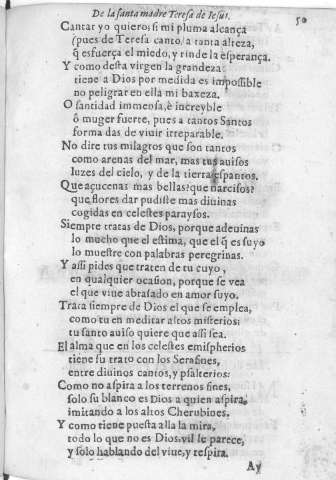 De la santa madre Teresa de Iesus. 50
Cantar yo quiero, si mi pluma alcança
(pues de Teresa canto) a tanta alteza,
q̃ esfuerça el miedo, y rinde la esperança.
Y como desta virgen la grandeza
tiene a Dios por medida es impossible
no peligrar en ella mi baxeza.
O santidad immensa, è increyble
ô muger fuerte, pues a tantos Santos
forma das de viuir irreparable.
No dire tus milagros que son tantos
como arenas del mar, mas tus auisos
luzes del cielo, y de la tierra espantos.
Que açucenas mas bellas? que narcisos?
que flores dar pudiste mas diuinas
cogidas en celestes paraysos.
Siempre tratas de Dios, porque adeuinas
lo mucho que el estima, que el q̃ es suyo
lo muestre con palabras peregrinas.
Y assi pides que traten de tu cuyo,
en qualquier ocasion, porque se vea
el que viue abrasado en amor suyo.
Trata siempre de Dios el que se emplea,
como tu en meditar altos misterios:
tu santo auiso quiere que assi sea.
El alma que en los celestes emispherios
tiene su trato con los Serafines,
entre diuinos cantos, y psalterios:
Como no aspira a los terrenos fines,
solo su blanco es Dios a quien aspira,
imitando a los altos Cherubines.
Y como tiene puesta alla la mira,
todo lo que no es Dios, vil le parece,
y solo hablando del viue, y respira.
Ay